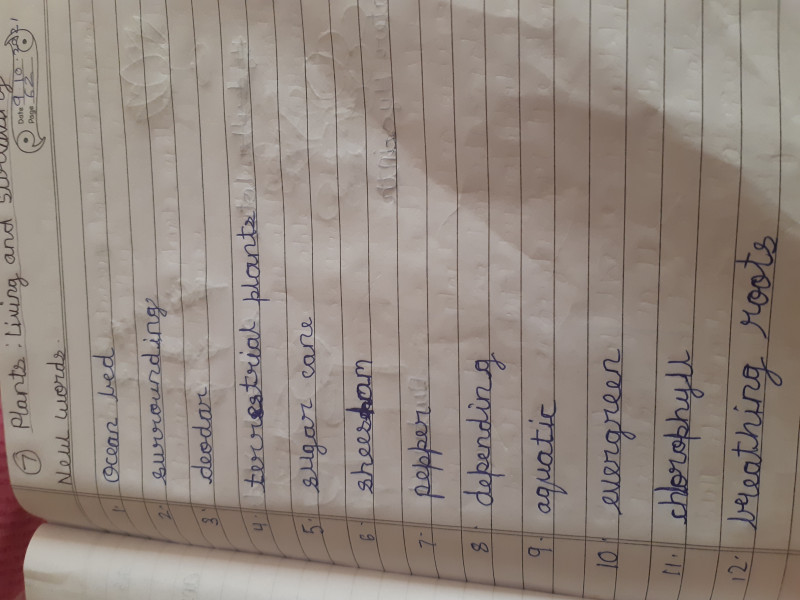 Date 9-10-2021
Page 62
7 Plants : Living and Surviving
New words.
1. Ocean bed
2. surrounding
3. deodar
4. terrestrial plants
5. sugar cane
6. sheesham
7. pepper
8. depending
9. aquatic
10. evergreen
11. chlorophyll
12. breathing roots